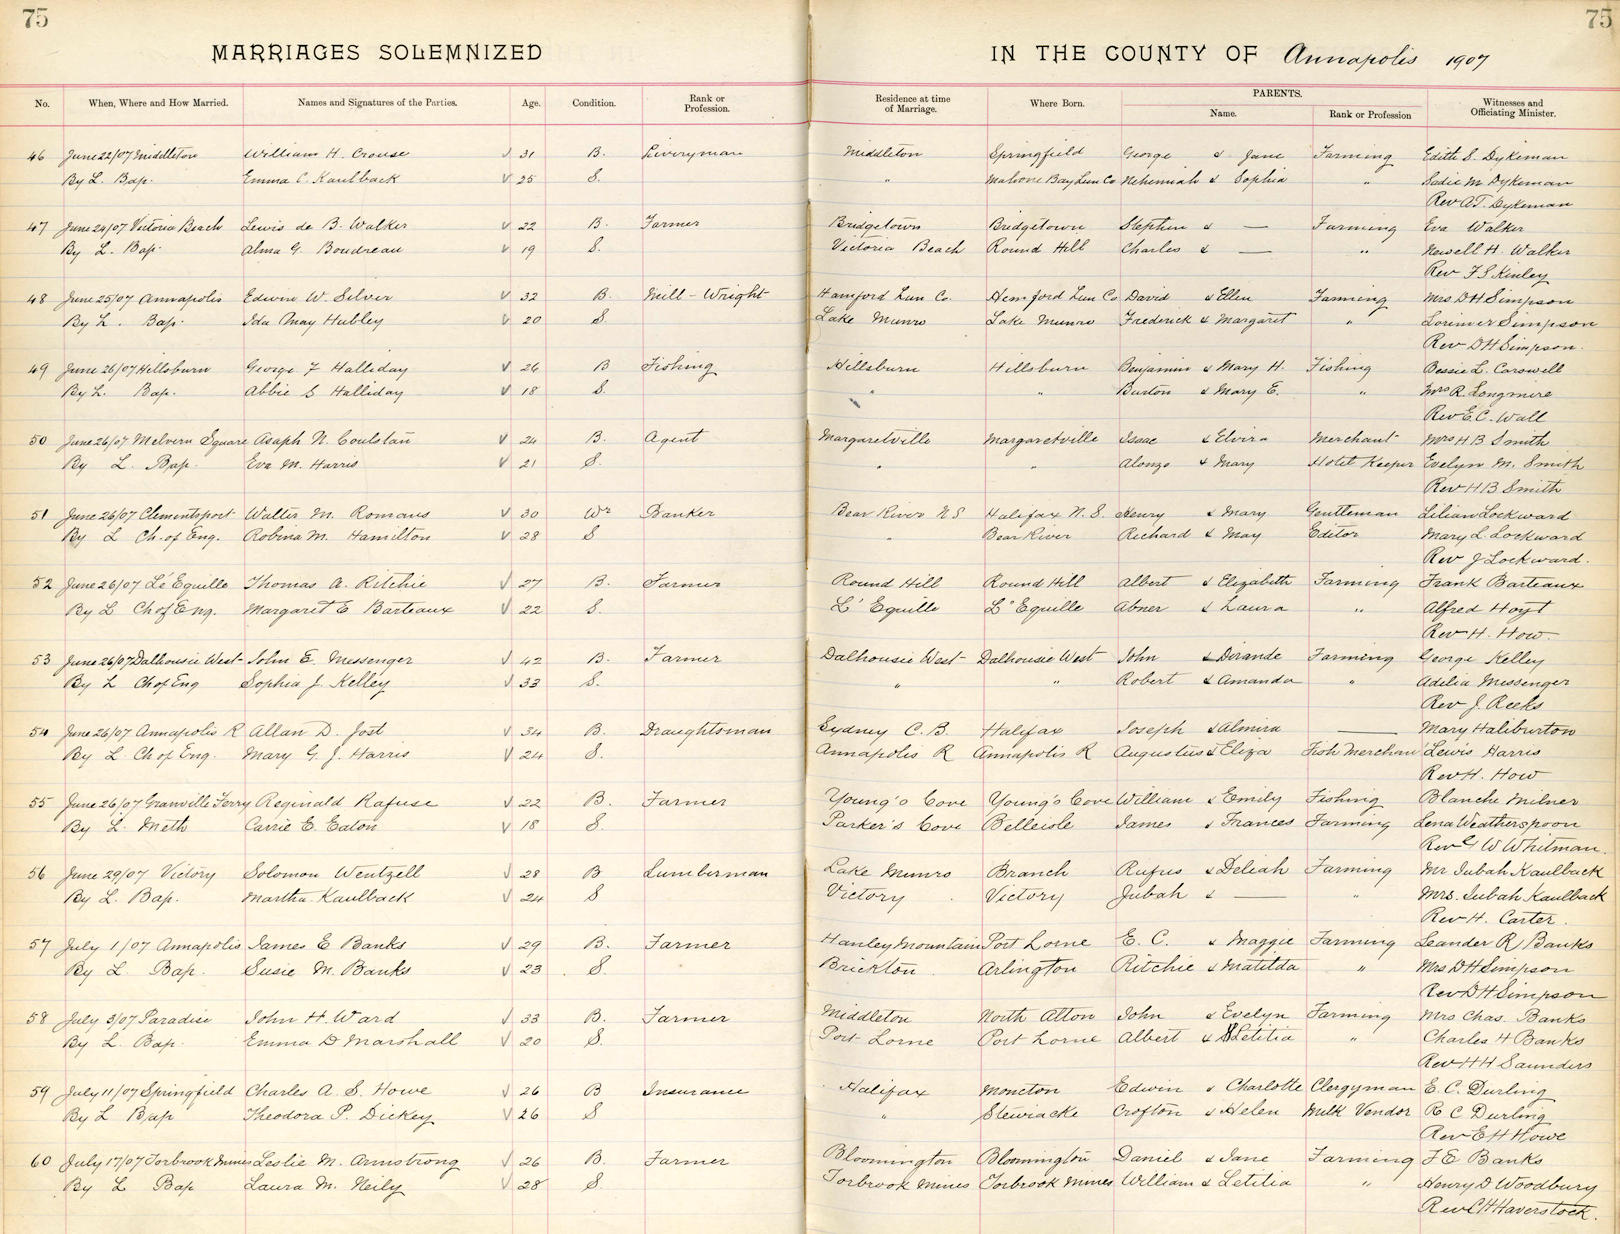 75 75
MARRIAGES SOLEMNIZED IN THE COUNTY OF Annapolis 1907
No. When, Where and How Married. Names and Signatures of the Parties. Age. Condition. Rank or Profession. Residence at time of Marriage. Where Born. PARENTS. Name. Rank or Profession Witnesses and Officiating Minister.
46 June 22/07 Middleton William H. Crouse √ 31 B. Liveryman Middleton Springfield George & Jane Farming Edith S. Dykeman
By L. Bap. Emma C. Kaulback √ 25 S. " Mahone Bay Lun Co Nehemiah & Sophia " Sadie M Dykeman
Rev A.T. Dykeman
47 June 24/07 Victoria Beach Lewis de B. Walker √ 22 B. Farmer Bridgetown Bridgetown Stephen & — Farming Eva Walker
By L. Bap. Alma G. Boudreau √ 19 S. Victoria Beach Round Hill Charles & — " Newell H. Walker
Rev F S Kinley
48 June 25/07 Annapolis Edwin W. Silver √ 32 B. Mill-Wright Hamford Lun Co. Hemford Lun Co David & Ellen Farming Mrs D H Simpson
By L. Bap. Ida May Hubley √ 20 S. Lake Munro Lake Munro Frederick & Margaret " Lorimer Simpson
Rev D H Simpson.
49 June 26/07 Hillsburn George F Halliday √ 26 B Fishing Hillsburn Hillsburn Benjamin & Mary H. Fishing Bessie L. Carswell
By L. Bap. Abbie S Halliday √ 18 S. " " Burton & Mary E. " Mrs R. Longmire
Rev E. C. Wall
50 June 26/07 Melvern Square Asaph N. Coulstan √ 24 B. Agent Margaretville Margaretville Isaac & Elvira Merchant Mrs H B Smith
By L. Bap. Eva M. Harris √ 21 S. " " Alonzo & Mary Hotel Keeper Evelyn M. Smith
Rev H B Smith
51 June 26/07 Clementsport Walter M. Romans √ 30 Wr Banker Bear River N S Halifax N. S. Henry & Mary Gentleman Lilian Lockward
By L Ch. of Eng. Robina M. Hamilton √ 28 S " Bear River Richard & May Editor Mary L. Lockward
Rev J Lockward.
52 June 26/07 Le' Equille Thomas A. Ritchie √ 27 B. Farmer Round Hill Round Hill Albert & Elizabeth Farming Frank Barteaux
By L Ch of Eng. Margaret E Barteaux √ 22 S. L' Equille L' Equille Abner & Laura " Alfred Hoyt
Rev H. How.
53 June 26/07 Dalhousie West John E. Messenger √ 42 B. Farmer Dalhousie West Dalhousie West John & Farming George Kelley
By L Ch of Eng Sophia J. Kelley √ 33 S. " " Robert & Amanda " Adelia Messenger
Rev J. Reeks
54 June 26/07 Annapolis R Allan D. Jost √ 34 B. Draughtsman Sydney C. B. Halifax Joseph & Almira — Mary Haliburton
By L Ch of Eng. Mary G. J. Harris √ 24 S. Annapolis R Annapolis R Augustus & Eliza Fish Merchan Lewis Harris
Rev H. How
55 June 26/07 Granville Ferry Reginald Rafuse √ 22 B. Farmer Young's Cove Young's Cove William & Emily Fishing Blanche Milner
By L. Meth Carrie E. Eaton √ 18 S. Parker's Cove Belleisle James & Frances Farming Lena Weatherspoon
Rev G W Whitman.
56 June 29/07 Victory Solomon Wentzell √ 28 B Lumberman Lake Munro Branch Rufus & Deliah Farming Mr Jubah Kaulback
By L. Bap. Martha Kaulback √ 24 S Victory Victory Jubah & — " Mrs. Jubah Kaulback
Rev H. Carter.
57 July 1/07 Annapolis James E Banks √ 29 B. Farmer Hanley Mountain Port Lorne E. C. & Maggie Farming Leander R Banks
By L. Bap. Susie M. Banks √ 23 S. Brickton Arlington Ritchie & Matilda " Mrs D H Simpson
Rev D H Simpson
58 July 3/07 Paradise John H. Ward √ 33 B. Farmer Middleton North Alton John & Evelyn Farming Mrs Chas. Banks
By L. Bap. Emma D Marshall √ 20 S. Port Lorne Port Lorne Albert & Letitia " Charles H Banks
Rev H H Saunders
59 July 11/07 Springfield Charles A. S. Howe √ 26 B Insurance Halifax Moncton Edwin & Charlotte Clergyman E. C. Durling
By L Bap Theodora P. Dickey √ 26 S " Stewiacke Crofton & Helen Milk Vendor R C Durling
Rev E H Howe
60 July 17/07 Torbrook Mines Leslie M. Armstrong √ 26 B. Farmer Bloomington Bloomington Daniel & Jane Farming F E Banks
By L Bap Laura M. Neily √ 28 S Torbrook Mines Torbrook Mines William & Letitia " Henry D Woodbury
Rev C H Haverstock.